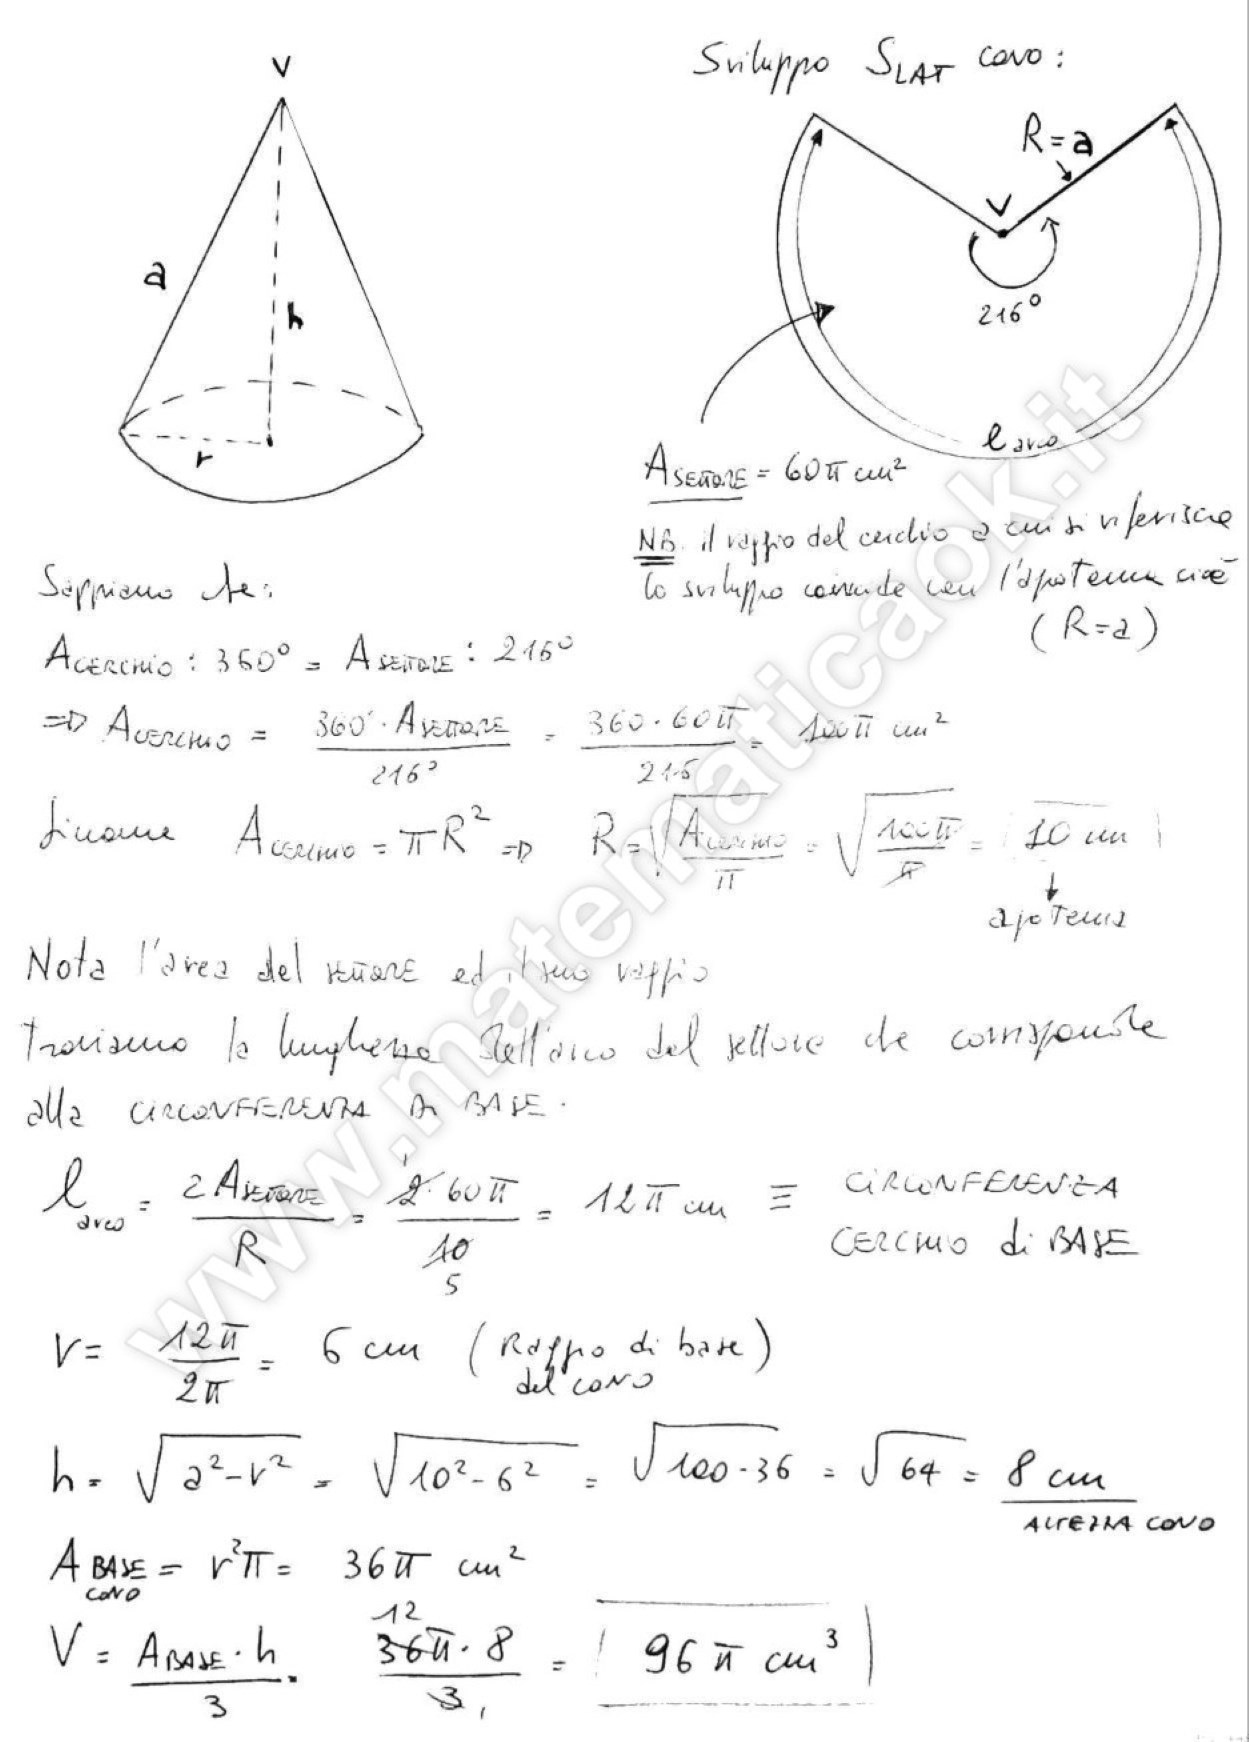 V
a
h
r
Sviluppo SLAT cono:
R=a
V
216°
l arco
A SETTORE = 60π cm²
NB. il raggio del cerchio a cui si riferisce
lo sviluppo coincide con l'apotema cioè
(R=a)
Sappiamo che:
ACERCHIO : 360° = A SETTORE : 216°
=> ACERCHIO = 360° · ASETTORE / 216° = 360 · 60π / 216 = 100π cm²
siccome ACERCHIO = πR² => R = √(ACERCHIO / π) = √(100π / π) = 10 cm
apotema
Nota l'area del SETTORE ed il suo raggio
troviamo la lunghezza dell'arco del settore che corrisponde
alla CIRCONFERENZA DI BASE.
l arco = 2 ASETTORE / R = 2 · 60π / 10 = 12π cm ≡ CIRCONFERENZA
1
5
CERCHIO di BASE
r = 12π / 2π = 6 cm (Raggio di base)
del CONO
h = √(a² - r²) = √(10² - 6²) = √(100 - 36) = √64 = 8 cm
ALTEZZA CONO
A BASE = r²π = 36π cm²
CONO
V = ABASE · h / 3 · 36π · 8 / 3 = 96π cm³
12
1
www.matematicaok.it